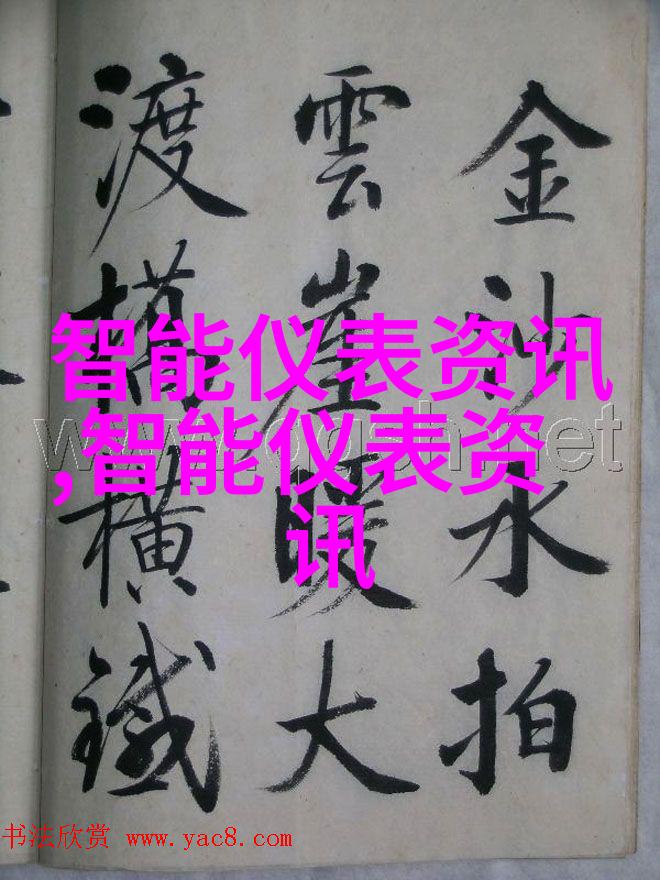 金沙水拍
雲崖暖大
渡橋橫鐵
智能仪表资讯
,智能仪表资
讯
书法欣赏 www.yac8.com